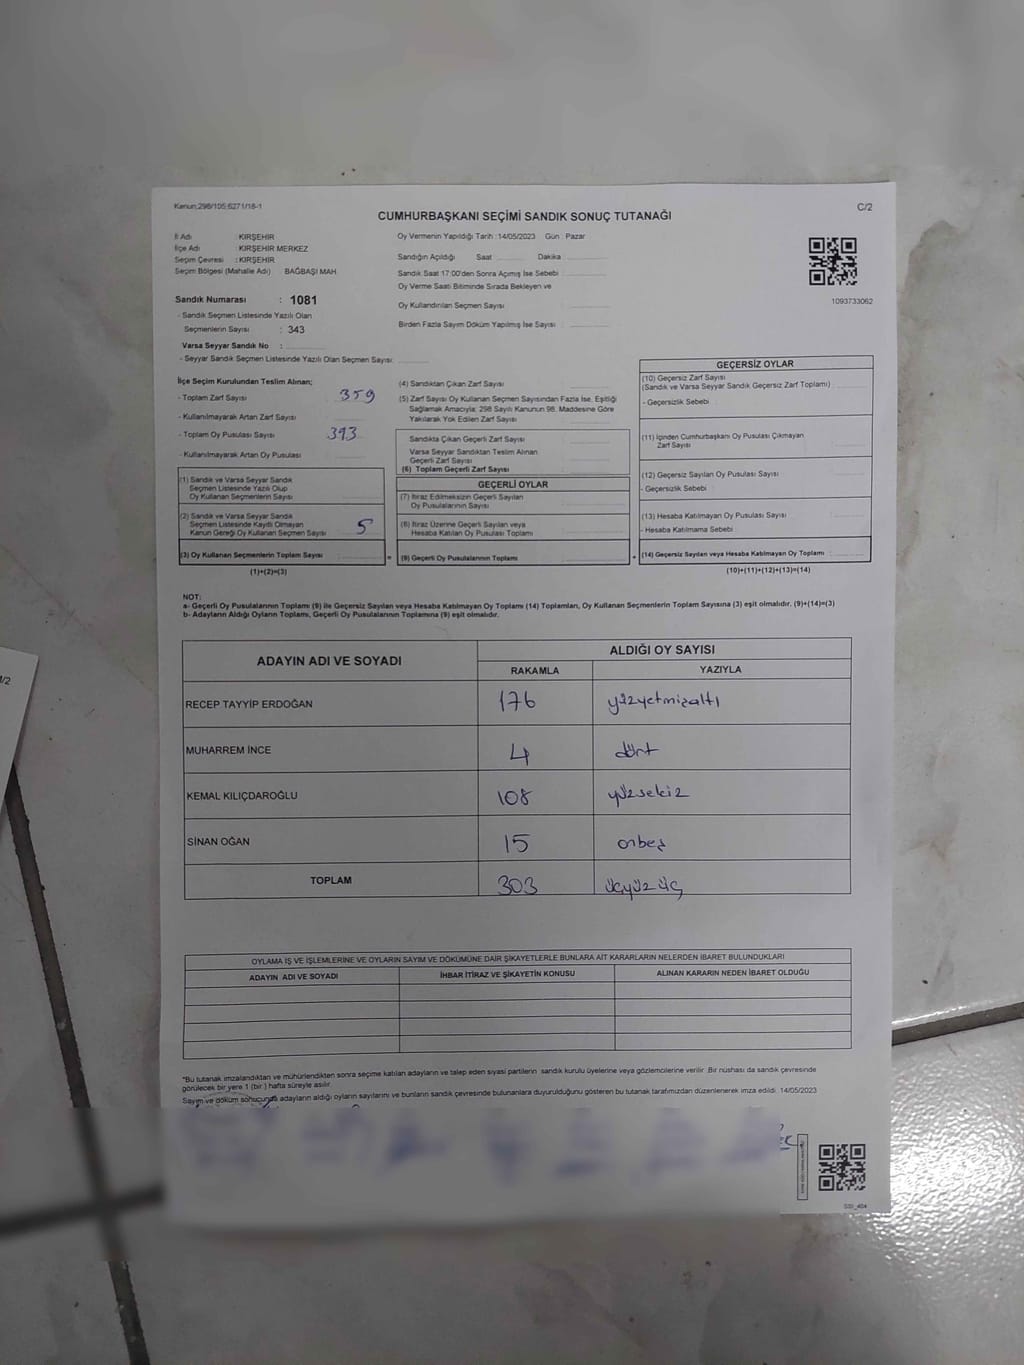 Kanun;298/105;6271/18-1
C/2
CUMHURBAŞKANI SEÇİMİ SANDIK SONUÇ TUTANAĞI
İl Adı : KIRŞEHİR
İlçe Adı : KIRŞEHİR MERKEZ
Seçim Çevresi : KIRŞEHİR
Seçim Bölgesi (Mahalle Adı) BAĞBAŞI MAH.
Sandık Numarası : 1081
- Sandık Seçmen Listesinde Yazılı Olan
Seçmenlerin Sayısı : 343
Varsa Seyyar Sandık No :
- Seyyar Sandık Seçmen Listesinde Yazılı Olan Seçmen Sayısı:
Oy Vermenin Yapıldığı Tarih :14/05/2023 Gün : Pazar
Sandığın Açıldığı Saat Dakika
Sandık Saat 17:00'den Sonra Açımış İse Sebebi :
Oy Verme Saati Bitiminde Sırada Bekleyen ve
Oy Kullandırılan Seçmen Sayısı :
Birden Fazla Sayım Döküm Yapılmış İse Sayısı :
1093733062
İlçe Seçim Kurulundan Teslim Alınan;
- Toplam Zarf Sayısı : 359
- Kullanılmayarak Artan Zarf Sayısı :
- Toplam Oy Pusulası Sayısı : 393
- Kullanılmayarak Artan Oy Pusulası :
(1) Sandık ve Varsa Seyyar Sandık
Seçmen Listesinde Yazılı Olup
Oy Kullanan Seçmenlerin Sayısı
(2) Sandık ve Varsa Seyyar Sandık
Seçmen Listesinde Kayıtlı Olmayan
Kanun Gereği Oy Kullanan Seçmen Sayısı 5
(3) Oy Kullanan Seçmenlerin Toplam Sayısı =
(1)+(2)=(3)
(4) Sandıktan Çıkan Zarf Sayısı :
(5) Zarf Sayısı Oy Kullanan Seçmen Sayısından Fazla İse, Eşitliği
Sağlamak Amacıyla; 298 Sayılı Kanunun 98. Maddesine Göre
Yakılarak Yok Edilen Zarf Sayısı :
Sandıkta Çıkan Geçerli Zarf Sayısı :
Varsa Seyyar Sandıktan Teslim Alınan
Geçerli Zarf Sayısı :
(6) Toplam Geçerli Zarf Sayısı :
GEÇERLİ OYLAR
(7) İtiraz Edilmeksizin Geçerli Sayılan
Oy Pusulalarının Sayısı :
(8) İtiraz Üzerine Geçerli Sayılan veya
Hesaba Katılan Oy Pusulası Toplamı :
(9) Geçerli Oy Pusulalarının Toplamı : +
GEÇERSİZ OYLAR
(10) Geçersiz Zarf Sayısı
(Sandık ve Varsa Seyyar Sandık Geçersiz Zarf Toplamı) :
- Geçersizlik Sebebi :
(11) İçinden Cumhurbaşkanı Oy Pusulası Çıkmayan
Zarf Sayısı :
(12) Geçersiz Sayılan Oy Pusulası Sayısı :
- Geçersizlik Sebebi :
(13) Hesaba Katılmayan Oy Pusulası Sayısı :
- Hesaba Katılmama Sebebi :
(14) Geçersiz Sayılan veya Hesaba Katılmayan Oy Toplamı :
(10)+(11)+(12)+(13)=(14)
NOT:
a- Geçerli Oy Pusulalarının Toplamı (9) ile Geçersiz Sayılan veya Hesaba Katılmayan Oy Toplamı (14) Toplamları, Oy Kullanan Seçmenlerin Toplam Sayısına (3) eşit olmalıdır. (9)+(14)=(3)
b- Adayların Aldığı Oyların Toplamı, Geçerli Oy Pusulalarının Toplamına (9) eşit olmalıdır.
ADAYIN ADI VE SOYADI ALDIĞI OY SAYISI
RAKAMLA YAZIYLA
RECEP TAYYİP ERDOĞAN 176 yüzyetmişaltı
MUHARREM İNCE 4 dört
KEMAL KILIÇDAROĞLU 108 yüzsekiz
SİNAN OĞAN 15 onbeş
TOPLAM 303 üçyüz üç
OYLAMA İŞ VE İŞLEMLERİNE VE OYLARIN SAYIM VE DÖKÜMÜNE DAİR ŞİKAYETLERLE BUNLARA AİT KARARLARIN NELERDEN İBARET BULUNDUKLARI
ADAYIN ADI VE SOYADI İHBAR İTİRAZ VE ŞİKAYETİN KONUSU ALINAN KARARIN NEDEN İBARET OLDUĞU
*Bu tutanak imzalandıktan ve mühürlendikten sonra seçime katılan adayların ve talep eden siyasi partilerin sandık kurulu üyelerine veya gözlemcilerine verilir. Bir nüshası da sandık çevresinde
görülecek bir yere 1 (bir ) hafta süreyle asılır.
Sayım ve döküm sonucunda adayların aldığı oyların sayılarını ve bunların sandık çevresinde bulunanlara duyurulduğunu gösteren bu tutanak tarafımızdan düzenlenerek imza edildi. 14/05/2023
SSI_404